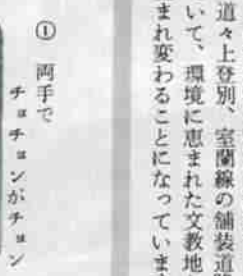 道々上登別、室蘭線の舗装道
いて、環境に恵まれた文教地
まれ変わることになっていま
① 両手で
チョチョンがチョン